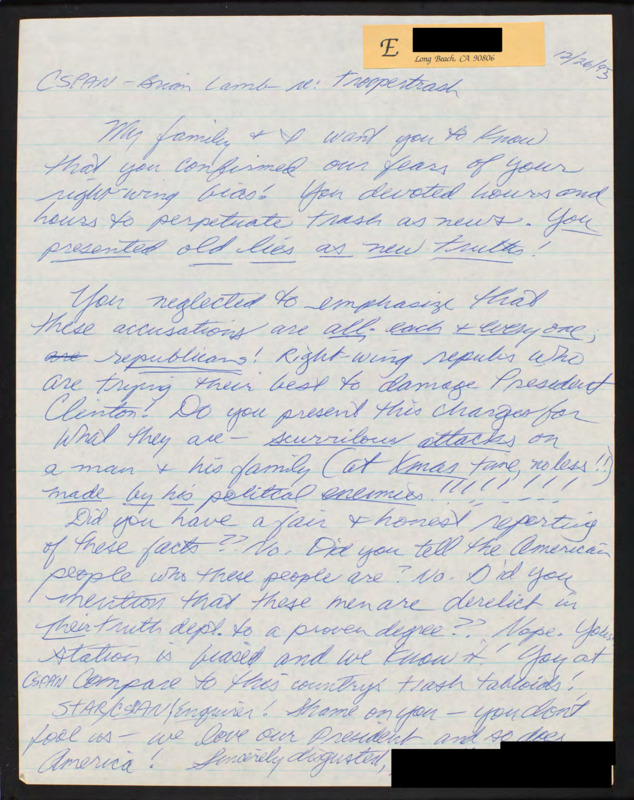 E
Long Beach, CA 90806
12/26/93
CSPAN - Brian Lamb re: Troopertrash
My family & I want you to know
that you confirmed our fears of your
right-wing bias! You devoted hours and
hours to perpetuate trash as news. You
presented old lies as new truths!
You neglected to emphasize that
these accusations are all, each & everyone,
are republicans! Right wing repubs who
are trying their best to damage President
Clinton! Do you present this charges for
what they are - scurrilous attacks on
a man & his family (at Xmas time, no less!!)
made by his political enemies!!!!!!!!!!
Did you have a fair & honest reporting
of these facts?? No. Did you tell the American
people who these people are? No. Did you
mention that these men are derelict in
their truth dept. to a proven degree?? Nope. Your
station is biased and we know it! You at
CSPAN Compare to this country's trash tabloids!
STAR/CSPAN/Enquirer! Shame on you - you don't
fool us - we love our President and so does
America! Sincerely disgusted,